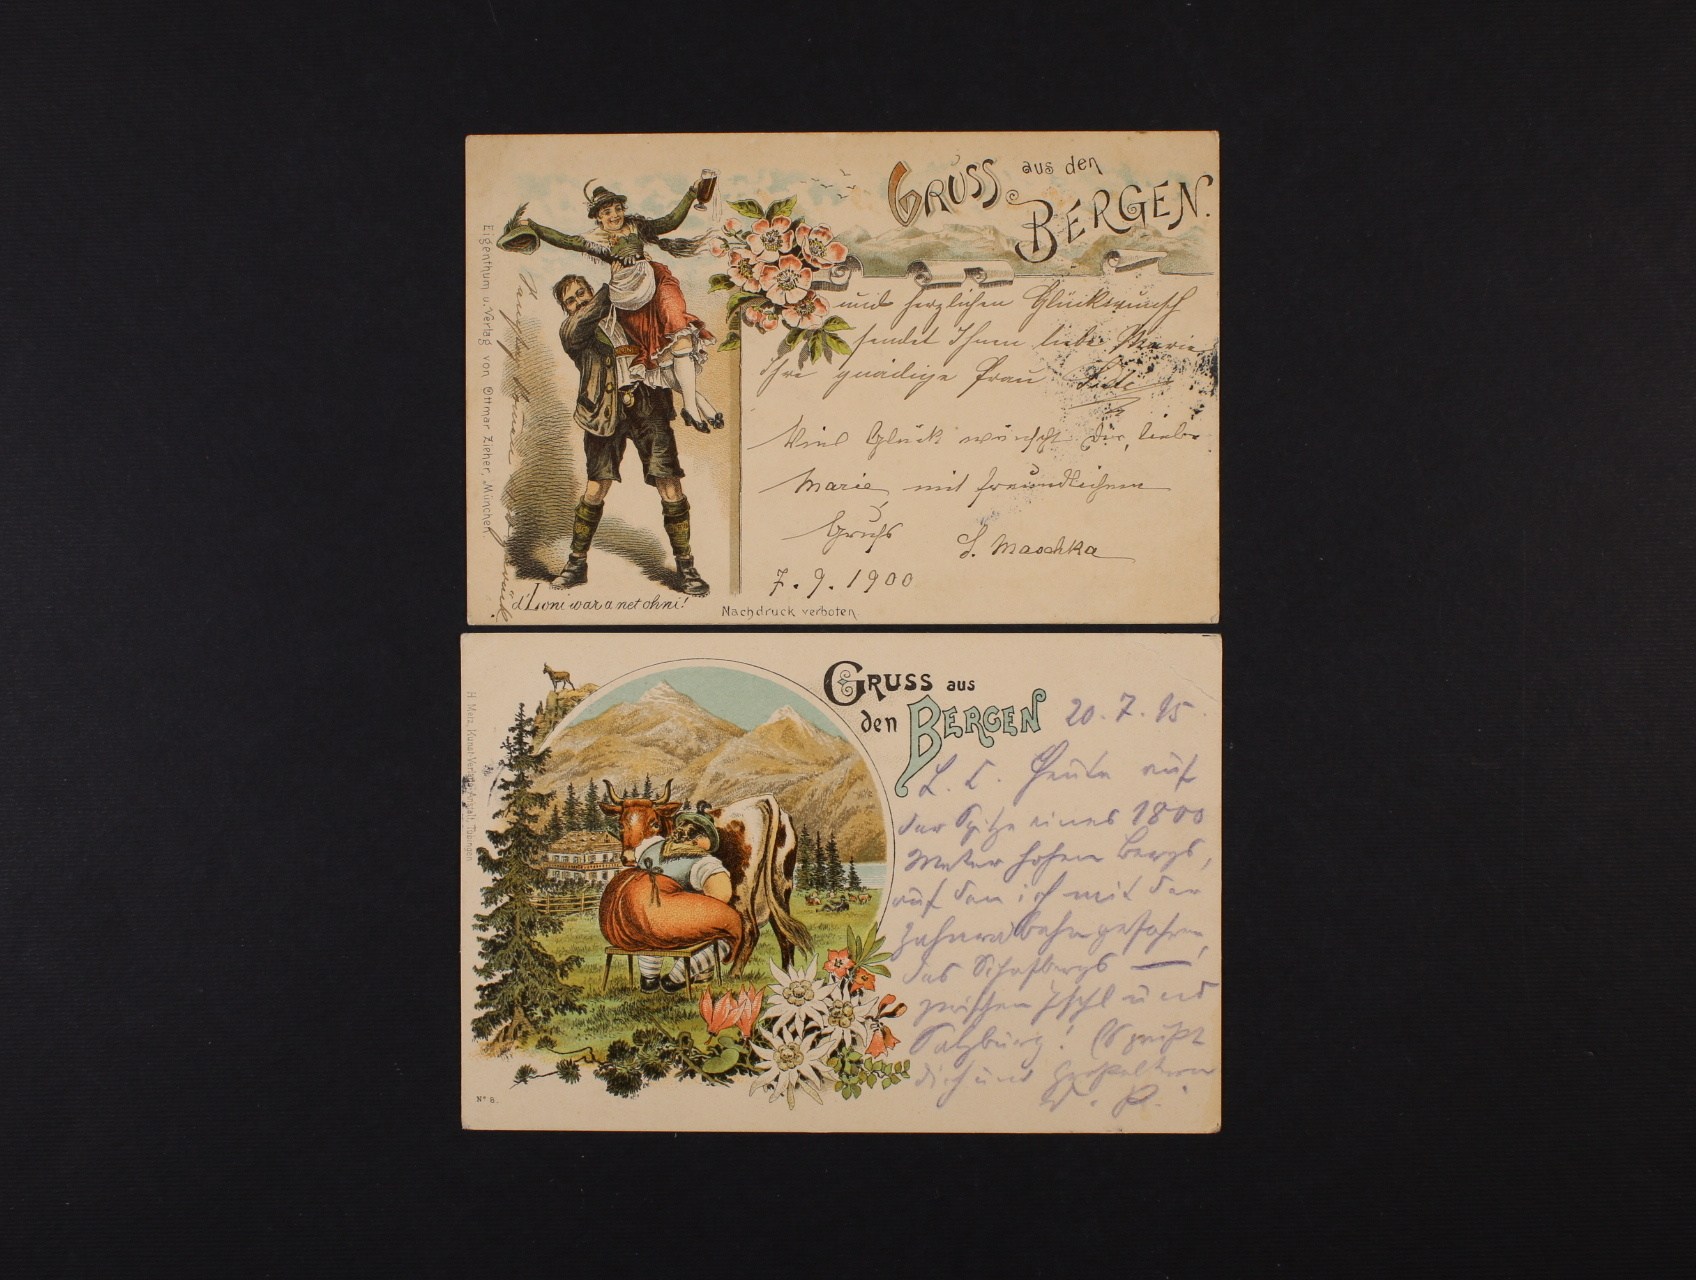 Gruss aus den
Bergen.
und herzlichen Glückwunsch
sendet Ihnen liebe Marie
Ihre gnädige Frau
Viel Glück wünscht Dir, liebe
Marie, mit freundlichem
Gruß S. Maschka
7.9.1900
d'Loni war a net ohni!
Nachdruck verboten
Eigenthum u. Verlag von Ottmar Zieher, München
Gruss aus
den Bergen
20.7.95.
L. L. Heute auf
der Spitze eines 1800
Meter hohen Bergs,
auf den ich mit der
Zahnradbahn gefahren,
des Schafbergs —
zwischen Ischl und
Salzburg! Es grüßt
dich und Großeltern
H. Merz, Kunst-Verlags-Anstalt, Tübingen
No 8.